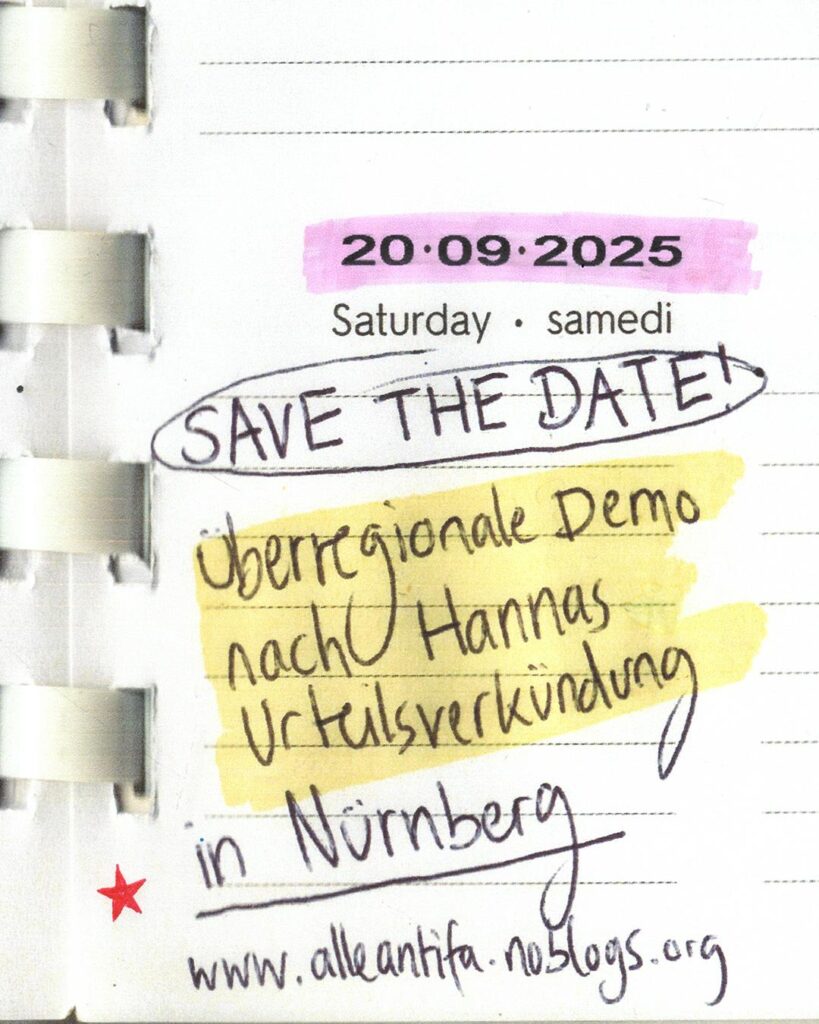 20·09·2025
Saturday · samedi
SAVE THE DATE!
Überregionale Demo
nach Hannas
Urteilsverkündung
in Nürnberg
www.alleantifa.noblogs.org